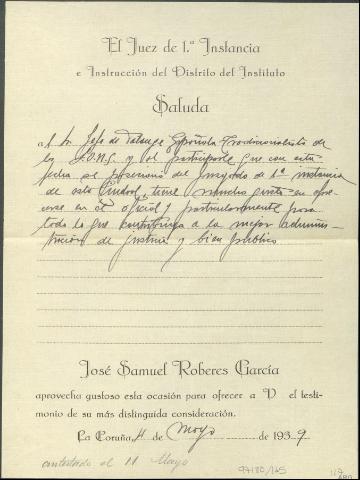 El Juez de 1.ª Instancia
e Instrucción del Distrito del Instituto
Saluda
al Sr. Jefe de Falange Española Tradicionalista de
las J.O.N.S. y al participarle que con esta
fecha se del Juzgado de 1ª instancia
de esta Ciudad, tiene mucho gusto en ofre-
cerse en el oficial y particularmente para
todo lo que contribuya a la mejor adminis-
tración de justicia y bien público
José Samuel Roberes García
aprovecha gustoso esta ocasión para ofrecer a V el testi-
monio de su más distinguida consideración.
La Coruña 4 de Mayo de 1939
contestado el 11 Mayo